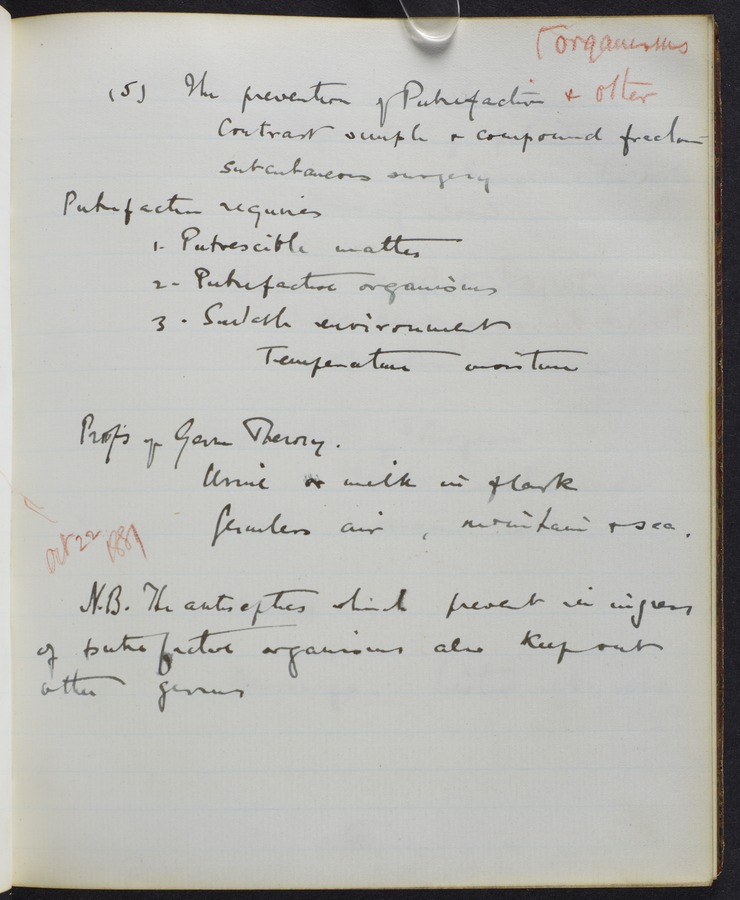 [organisms
(5) The prevention of Putrefaction & other
Contrast simple & compound fracture
subcutaneous surgery
Putrefaction requires
1. Putrescible matter
2. Putrefactive organisms
3. Suitable environment
Temperature moisture
Proofs of Germ Theory.
Urine or milk in flask
Germless air, mountain & sea.
Oct 22 1889
N.B. The antiseptics which prevent the ingress
of putrefactive organisms also keep out
other germs